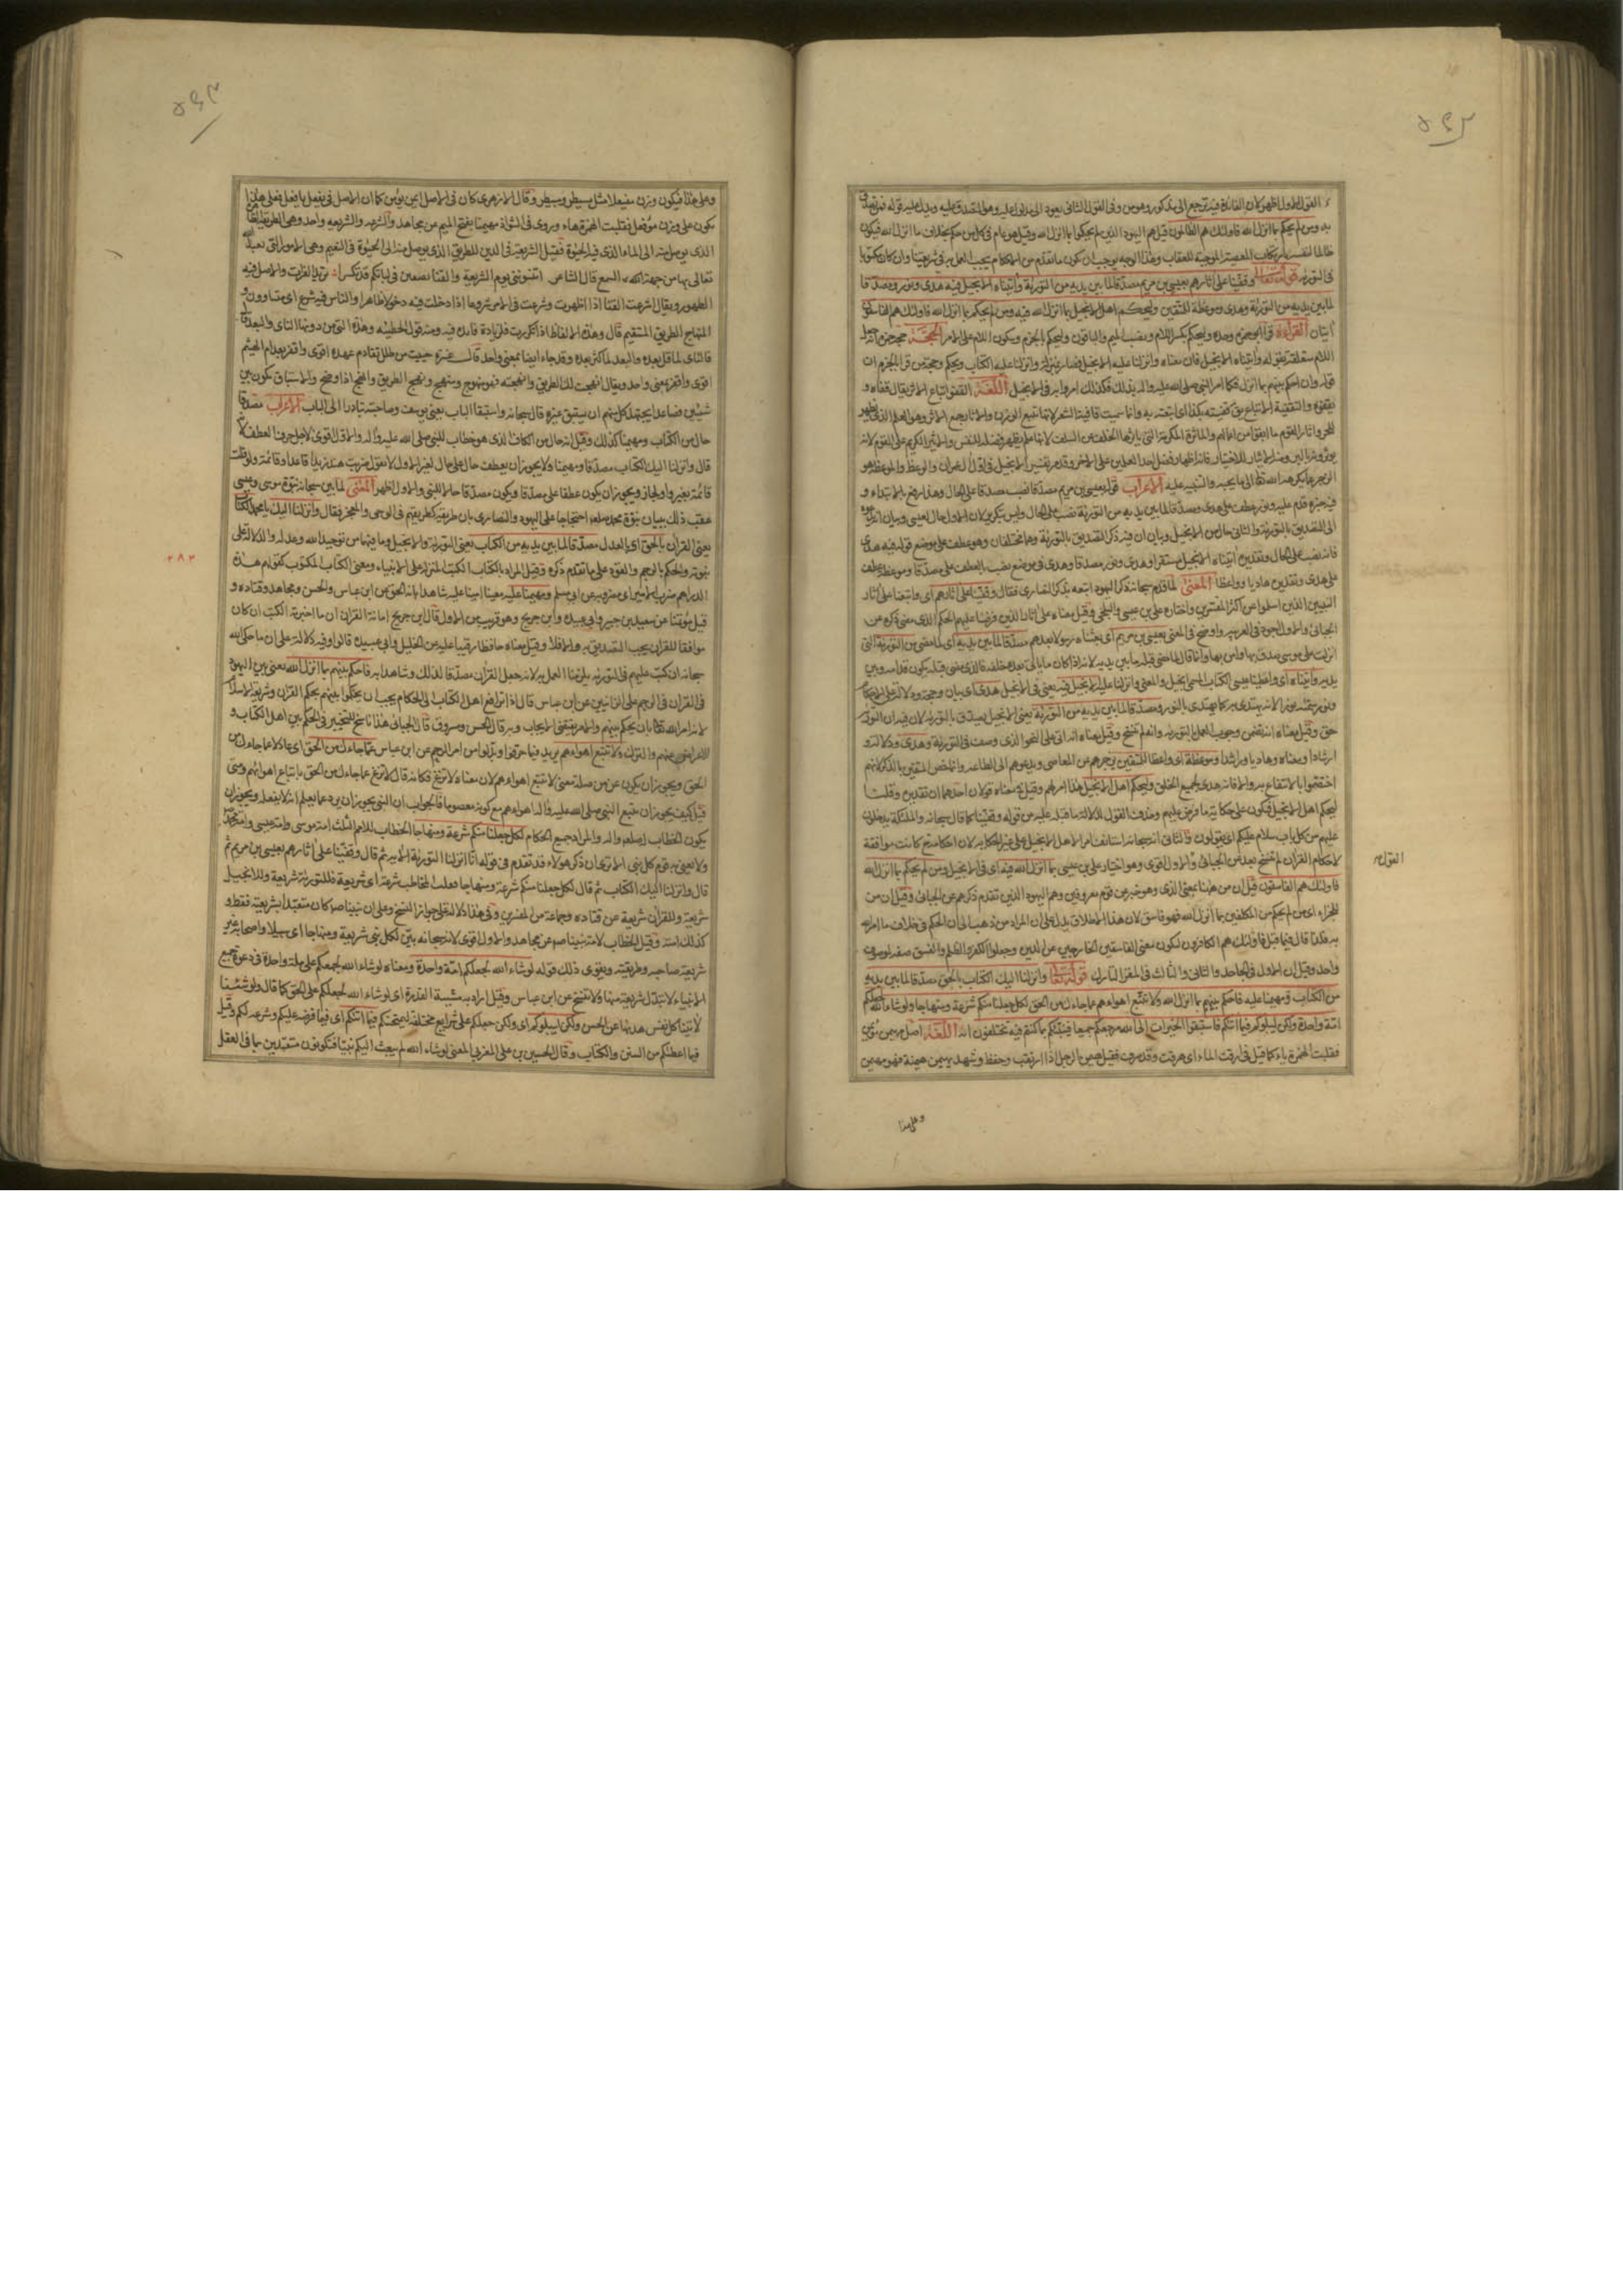 القول الاول اظهر لان الفائدة فيه ترجع الى مذكور وهو من وفى القول الثانى يعود الى مدلول عليه وهو المتصدق عليه ويدل عليه قوله فمن تصدق
به ومن لم يحكم بما انزل الله فاولئك هم الظالمون قيل هم اليهود الذين لم يحكموا بما انزل الله وقيل هو عام فى كل من حكم بخلاف ما انزل الله فيكون
ظالما لنفسه بارتكاب المعصية الموجبة للعقاب وهذا الوجه يوجب ان يكون ما تقدم من الاحكام يجب العمل به فى شريعتنا وان كان مكتوبا
فى التورية قوله تعالى وقفينا على اثارهم بعيسى بن مريم مصدقا لما بين يديه من التورية واتيناه الانجيل فيه هدى ونور ومصدقا
لما بين يديه من التورية وهدى وموعظة للمتقين وليحكم اهل الانجيل بما انزل الله فيه ومن لم يحكم بما انزل الله فاولئك هم الفاسقون
ايتان القراءة قرا حمزة وحده وليحكم بكسر اللام ونصب الميم والباقون وليحكم بالجزم وسكون اللام على الامر الحجة حجة حمزة انه جعل
اللام متعلقة بقوله واتيناه الانجيل فان معناه وانزلنا عليه الانجيل فصار بمنزلة وانزلنا عليه الكتاب ليحكم وحجة من قرا بالجزم ان
قوله وان احكم بينهم بما انزل فكما امر النبى صلى الله عليه واله بذلك فكذلك امروا به فى الانجيل اللغة القفو اتباع الاثر يقال قفاه و
يقفوه والتقفية الاتباع يق قفيته بكذا اى اتبعته به وانما سميت قافية الشعر لانها تتبع الوزن والاثار جمع الاثر وهو العلم الذى يظهر
للحس واثار القوم ما ابقوا من اعمالهم والماثرة المكرمة التى ياثرها الخلف عن السلف لانها علم يظهر فضله للنفس والاثير الكريم على القوم لانهم
يوثرونه بالبر ومنه الايثار للاختيار فانه اظهار فضل احد العملين على الاخر وقد مر تفسير الانجيل فى اول ال عمران والوعظ والموعظة هو
الزجر عما يكرهه الله تعالى الى ما يحبه والتنبيه عليه الاعراب قوله بعيسى بن مريم مصدقا نصب مصدقا على الحال وهدى رفع بالابتداء و
فيه خبره قدم عليه ونور عطف على هدى ومصدقا لما بين يديه من التورية نصب على الحال وليس بتكرير لان الاول حال لعيسى وبيان انه يدعو
الى التصديق بالتورية والثانى حال من الانجيل وبيان ان فيه ذكر التصديق بالتورية وهما مختلفان وهو عطف على موضع قوله فيه هدى
فانه نصب على الحال وتقديره اتيناه الانجيل مستقرا فيه هدى ونور ومصدقا وهدى فى موضع نصب بالعطف على مصدقا وموعظة عطف
على هدى وتقديره هاديا وواعظا المعنى لما قدم سبحانه ذكر اليهود اتبعه بذكر النصارى فقال وقفينا على اثارهم اى واتبعنا على اثار
النبيين الذين اسلموا عن اكثر المفسرين واختاره على بن عيسى والبلخى وقيل معناه على اثار الذين فرضنا عليهم الحكم الذى مضى ذكره عن
الجبائى والاول اجود فى العربية واوضح فى المعنى بعيسى بن مريم اى بعثناه رسولا بعدهم مصدقا لما بين يديه اى لما مضى من التورية التى
انزلت على موسى صدق بها وامن بها وانما قال لما مضى قبله ما بين يديه لانه اذا كان ما ياتى بعده خلفه فالذى مضى قبله يكون قدامه وبين
يديه واتيناه اى واعطينا عيسى الكتاب المسمى الانجيل والمعنى وانزلنا عليه الانجيل فيه يعنى فى الانجيل هدى اى بيان وحجة ودلائل على الاحكام
ونور سماه نورا لانه يهتدى به كما يهتدى بالنور ومصدقا لما بين يديه من التورية يعنى الانجيل يصدق بالتورية لان فيه ان التورية
حق وقيل معناه انه تضمن وجوب العمل بالتورية وانه لم تنسخ وقيل معناه انه اتى على النحو الذى وصف فى التورية وهدى ودلالة و
ارشادا ومعناه وهاديا وراشدا وموعظة اى واعظا للمتقين يزجرهم عن المعاصى ويدعوهم الى الطاعة وانما خص المتقين بالذكر لانهم
اختصوا بالانتفاع به والا فانه هدى لجميع الخلق وليحكم اهل الانجيل هذا امر لهم وقيل فى معناه قولان احدهما ان تقديره وقلنا
ليحكم اهل الانجيل فيكون على حكاية ما فرض عليهم وحذف القول لدلالة ما قبله عليه من قوله وقفينا كما قال سبحانه والملئكة يدخلون
عليهم من كل باب سلام عليكم اى يقولون والثانى انه سبحانه استانف امر الاهل الانجيل على غير الحكاية لان احكامه ح كانت موافقة
لاحكام القران لم تنسخ بعد عن الجبائى والاول اقوى وهو اختيار على بن عيسى بما انزل الله فيه اى فى الانجيل ومن لم يحكم بما انزل الله
فاولئك هم الفاسقون قيل ان من ههنا بمعنى الذى وهو خبر عن قوم معروفين وهم اليهود الذين تقدم ذكرهم عن الجبائى وقيل ان من
للجزاء اى من لم يحكم من المكلفين بما انزل الله فهو فاسق لان هذا الاطلاق يدل على ان المراد من ذهب الى ان الحكم فى خلاف ما امر الله
به فلهذا قال فيما قبل فاولئك هم الكافرون فيكون معنى الفاسقين الخارجين عن الدين وجعلوا الكفر والظلم والفسق صفة لموصوف
واحد وقيل ان الاول فى الجاحد والثانى والثالث فى المقر التارك قوله تعالى وانزلنا اليك الكتاب بالحق مصدقا لما بين يديه
من الكتاب ومهيمنا عليه فاحكم بينهم بما انزل الله ولا تتبع اهواءهم عما جاءك من الحق لكل جعلنا منكم شرعة ومنهاجا ولو شاء الله لجعلكم
امة واحدة ولكن ليبلوكم فيما اتيكم فاستبقوا الخيرات الى الله مرجعكم جميعا فينبئكم بما كنتم فيه تختلفون اية اللغة اصل مهيمن مؤيمن
فقلبت الهمزة هاء كما قيل فى ارقت الماء اى هرقت وقد صرف فقيل هيمن الرجل اذا ارتقب وحفظ وشهد يهيمن هيمنة فهو مهيمن
وعلى هذا
وعلى هذا فيكون وزن مفيعلا مثل مسيطر ومبيطر وقال الازهرى كان فى الاصل ايمن يؤيمن كما ان الاصل فى يفعل يافعل فعلى هذا
يكون على وزن مؤفعل فقلبت الهمزة هاء وروى فى الشواذ مهيمنا بفتح الميم عن مجاهد والشرعة والشريعة واحد وهى الطريقة الظاهرة
الذى يوصل منه الى الماء الذى فيه الحيوة فقيل الشريعة فى الدين للطريق الذى يوصل منه الى الحيوة فى النعيم وهى الامور التى تعبد الله
تعالى بها من جهة السمع قال الشاعر اتنسونى يوم الشريعة والقنا بصفين فى لباتكم قد تكسرا يريد شريعة الفرات والاصل فيه
الظهور ويقال اشرعت القنا اذا اظهرت وشرعت فى الامر شروعا اذا دخلت فيه دخولا ظاهرا والناس فيه شرع اى متساوون و
المنهاج الطريق المستقيم قال وهذه الالفاظ اذا تكررت فلزيادة فائدة فيه ومنه قول الحطيئة وهند اتى من دونها الناى والبعد قال
فالناى لما قل بعده والبعد لما كثر بعده وقد جاء ايضا بمعنى واحد قال عنترة حييت من طلل تقادم عهده اقوى واقفر بعد ام الهيثم
اقوى واقفر بمعنى واحد ويقال نهجت لك الطريق وانهجته فهو منهوج ومنهج ونهج الطريق وانهج اذا وضح والاستباق يكون بين
شيئين فصاعدا يجتهد كل منهم ان يستبق غيره قال سبحانه واستبقا الباب يعنى يوسف وصاحبته تبادرا الى الباب الاعراب مصدقا
حال من الكتاب ومهيمنا كذلك وقيل انه حال من الكاف الذى هو خطاب للنبى صلى الله عليه واله والاول اقوى لاجل حرف العطف لانه
قال وانزلنا اليك الكتاب مصدقا ومهيمنا ولا يجوز ان يعطف حال على حال لغير الاول لا تقول ضربت هند زيدا قاعدا وقائمة ولو قلت
قائمة بغير واو لجاز ويجوز ان يكون عطفا على مصدقا ويكون مصدقا حالا للنبى والاول اظهر المعنى لما بين سبحانه نبوة موسى وعيسى
عقب ذلك ببيان نبوة محمد صلعم احتجاجا على اليهود والنصارى بان طريقته كطريقتهم فى الوحى والمعجز فقال وانزلنا اليك يا محمد الكتاب
يعنى القران بالحق اى بالعدل مصدقا لما بين يديه من الكتاب يعنى التورية والانجيل وما فيهما من توحيد الله وعدله والدلالة على
نبوته والحكم بالرجم والقود على ما تقدم ذكره وقيل المراد بالكتاب الكتب المنزلة على الانبياء ومعنى الكتاب المكتوب كقولهم هذه
الدراهم ضرب الامير اى مضروبه عن ابى مسلم ومهيمنا عليه معناه امينا عليه شاهدا بانه الحق عن ابن عباس والحسن ومجاهد وقتادة و
قيل مؤتمنا عن سعيد بن جبير وابى عبيدة وابن جريج وهو قريب من الاول قال ابن جريج امانة القران ان ما اخبر به الكتب ان كان
موافقا للقران يجب التصديق به والا فلا وقيل معناه حافظا رقيبا عليه عن الخليل وابى عبيدة قالوا وفيه دلالة على ان ما حكى الله
سبحانه ان كتبه عليهم فى التورية يلزمنا العمل به لانه جعل القران مصدقا لذلك وشاهدا به فاحكم بينهم بما انزل الله يعنى بين اليهود
فى القران فى الرجم على الزانيين عن ابن عباس قال اذا ترافع اهل الكتاب الى الحكام يجب ان يحكموا بينهم بحكم القران وشريعة الاسلام
لانه امر الله تعالى بان يحكم بينهم والامر يقتضى الايجاب وبه قال الحسن ومسروق قال الجبائى هذا ناسخ للتخيير فى الحكم بين اهل الكتاب و
للاعراض عنهم والترك ولا تتبع اهواءهم يريد فيما حرفوا وبدلوا من امر الرجم عن ابن عباس عما جاءك من الحق اى عادلا عما جاءك من
الحق ويجوز ان يكون عن من صلة معنى لا تتبع اهواءهم لان معناه لا تزغ فكانه قال لا تزغ عما جاءك من الحق باتباع اهوائهم ومتى
قيل كيف يجوز ان يتبع النبى صلى الله عليه واله اهواءهم مع كونه معصوما فالجواب ان النبى يجوز ان يرد عما يعلم انه لا يفعله ويجوز ان
يكون الخطاب له صلعم واله والمراد جميع الحكام لكل جعلنا منكم شرعة ومنهاجا الخطاب للامم الثلث امة موسى وامة عيسى وامة محمد
ولا يعنى به قوم كل نبى الا ترى ان ذكر هولاء قد تقدم فى قوله انا انزلنا التورية الاية ثم قال وقفينا على اثارهم بعيسى بن مريم ثم
قال وانزلنا اليك الكتاب ثم قال لكل جعلنا منكم شرعة ومنهاجا فغلب المخاطب شرعة اى شريعة فللتورية شريعة وللانجيل
شريعة وللقران شريعة عن قتادة وجماعة من المفسرين وفى هذا دلالة على جواز النسخ وعلى ان نبينا ص كان متعبدا بشريعته فقط و
كذلك امته وقيل الخطاب لامة نبينا ص عن مجاهد والاول اقوى لانه سبحانه بين لكل نبى شريعة ومنهاجا اى سبيلا واضحا غير
شريعة صاحبه وطريقته ويقوى ذلك قوله لو شاء الله لجعلكم امة واحدة ومعناه لو شاء الله لجمعكم على ملة واحدة فى دعوة جميع
الانبياء لا تبدل شريعة منها ولا تنسخ عن ابن عباس وقيل اراد به مشيئة القدرة اى لو شاء الله لجمعكم على الحق كما قال ولو شئنا
لاتينا كل نفس هديها عن الحسن ولكن ليبلوكم اى ولكن جعلكم على شرايع مختلفة ليمتحنكم فيما اتيكم اى فيما فرضه عليكم وشرعه لكم وقيل
فيما اعطيكم من السنن والكتاب وقال الحسين بن على المغربى المعنى لو شاء الله لم يبعث اليكم نبيا فتكونون متعبدين بما فى العقل